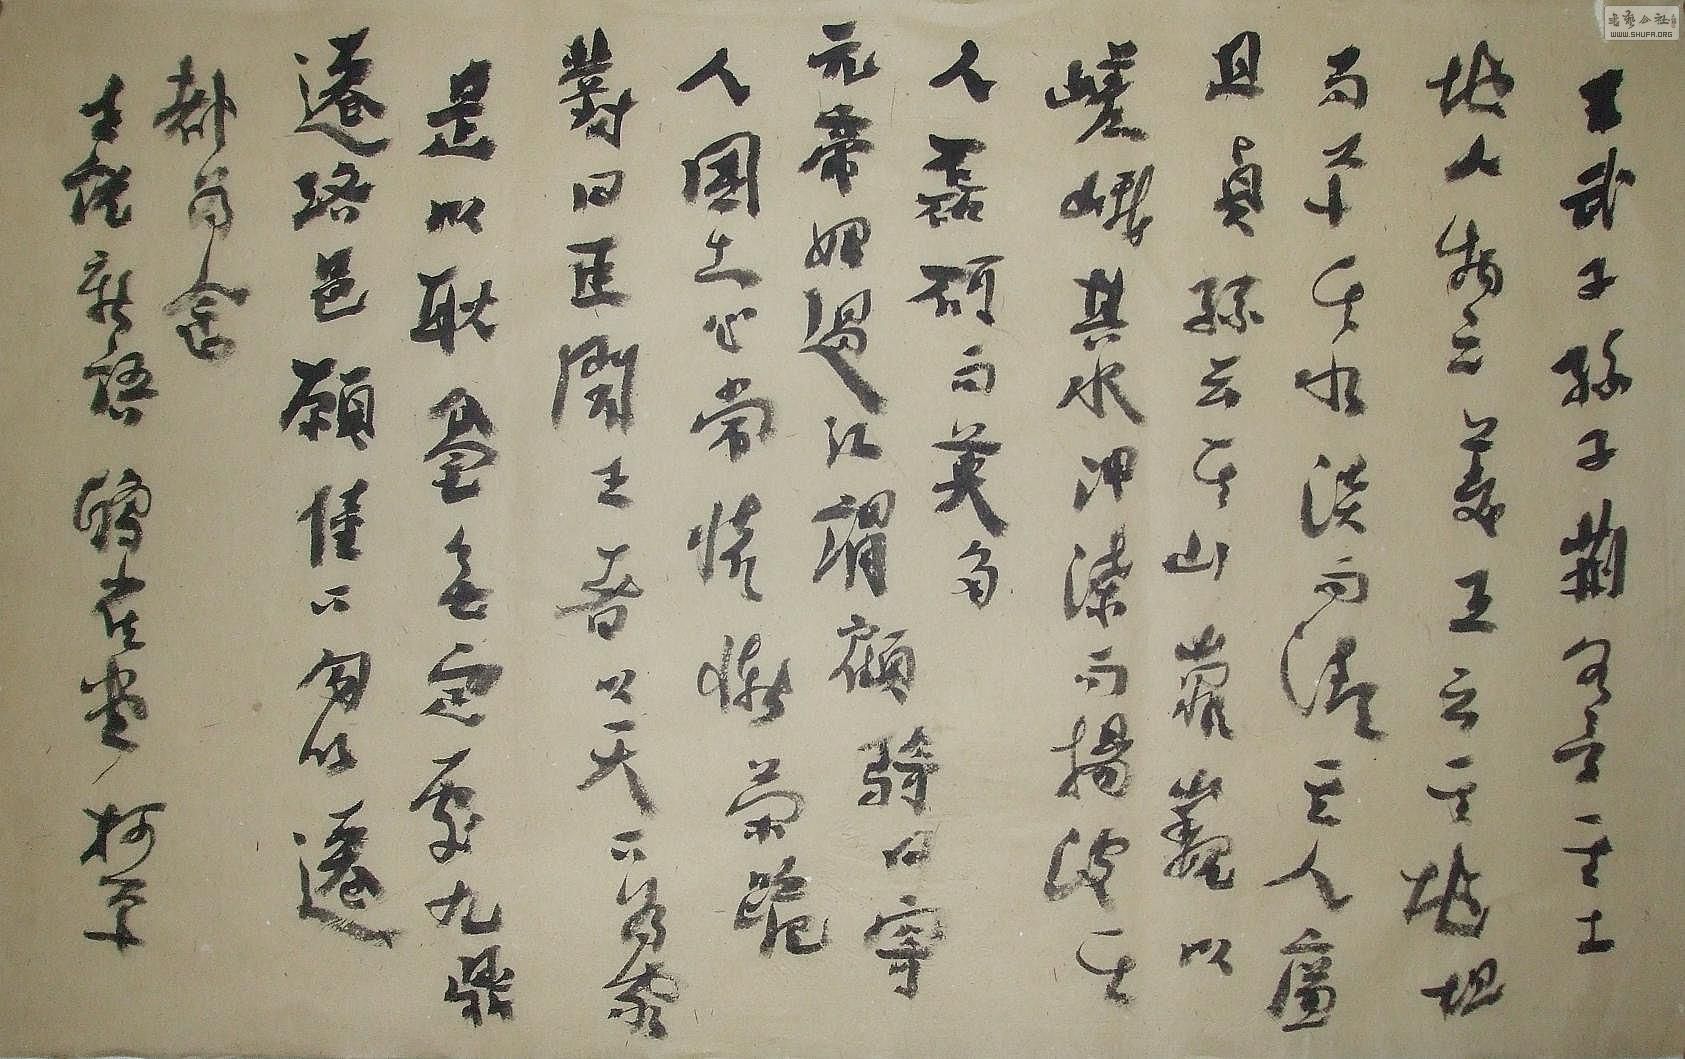 王武子孫子荊各言其土
地人物之美王云其地坦
而平其水淡而清其人廉
且貞孫云其山嶵巍以
嵯峨其水㳌渫而揚波其
人磊砢而英多
元帝始過江謂顧騎曰寄
人國土心常懷慚榮跪
對曰臣聞王者以天下為家
是以耿亳無定處九鼎
遷洛邑願陛下勿以遷
都為念
世說新語
WWW.SHUFA.ORG